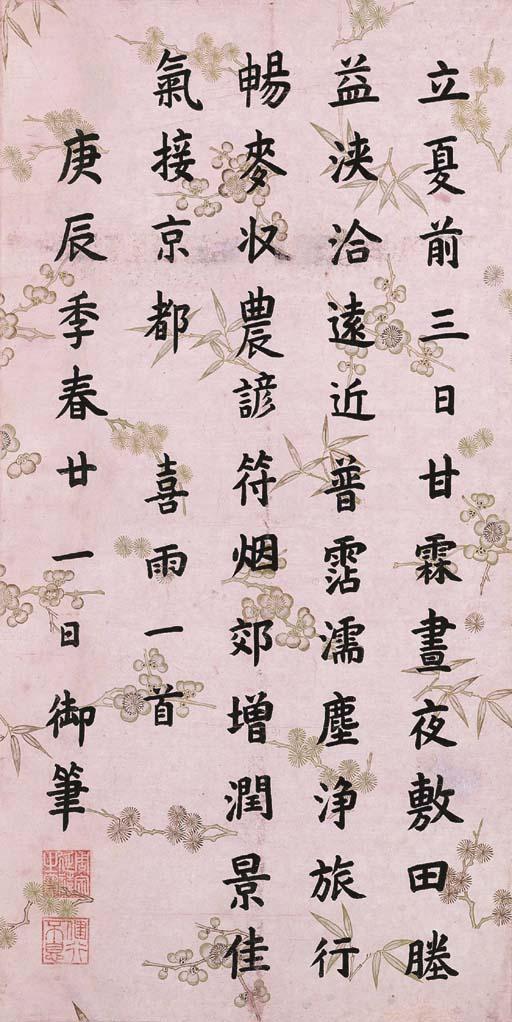 立夏前三日甘霖晝夜敷田塍
益浹洽遠近普霑濡塵浄旅行
暢麥収農諺符烟郊増潤景佳
氣接京都　喜雨一首
庚辰季春廿一日御筆